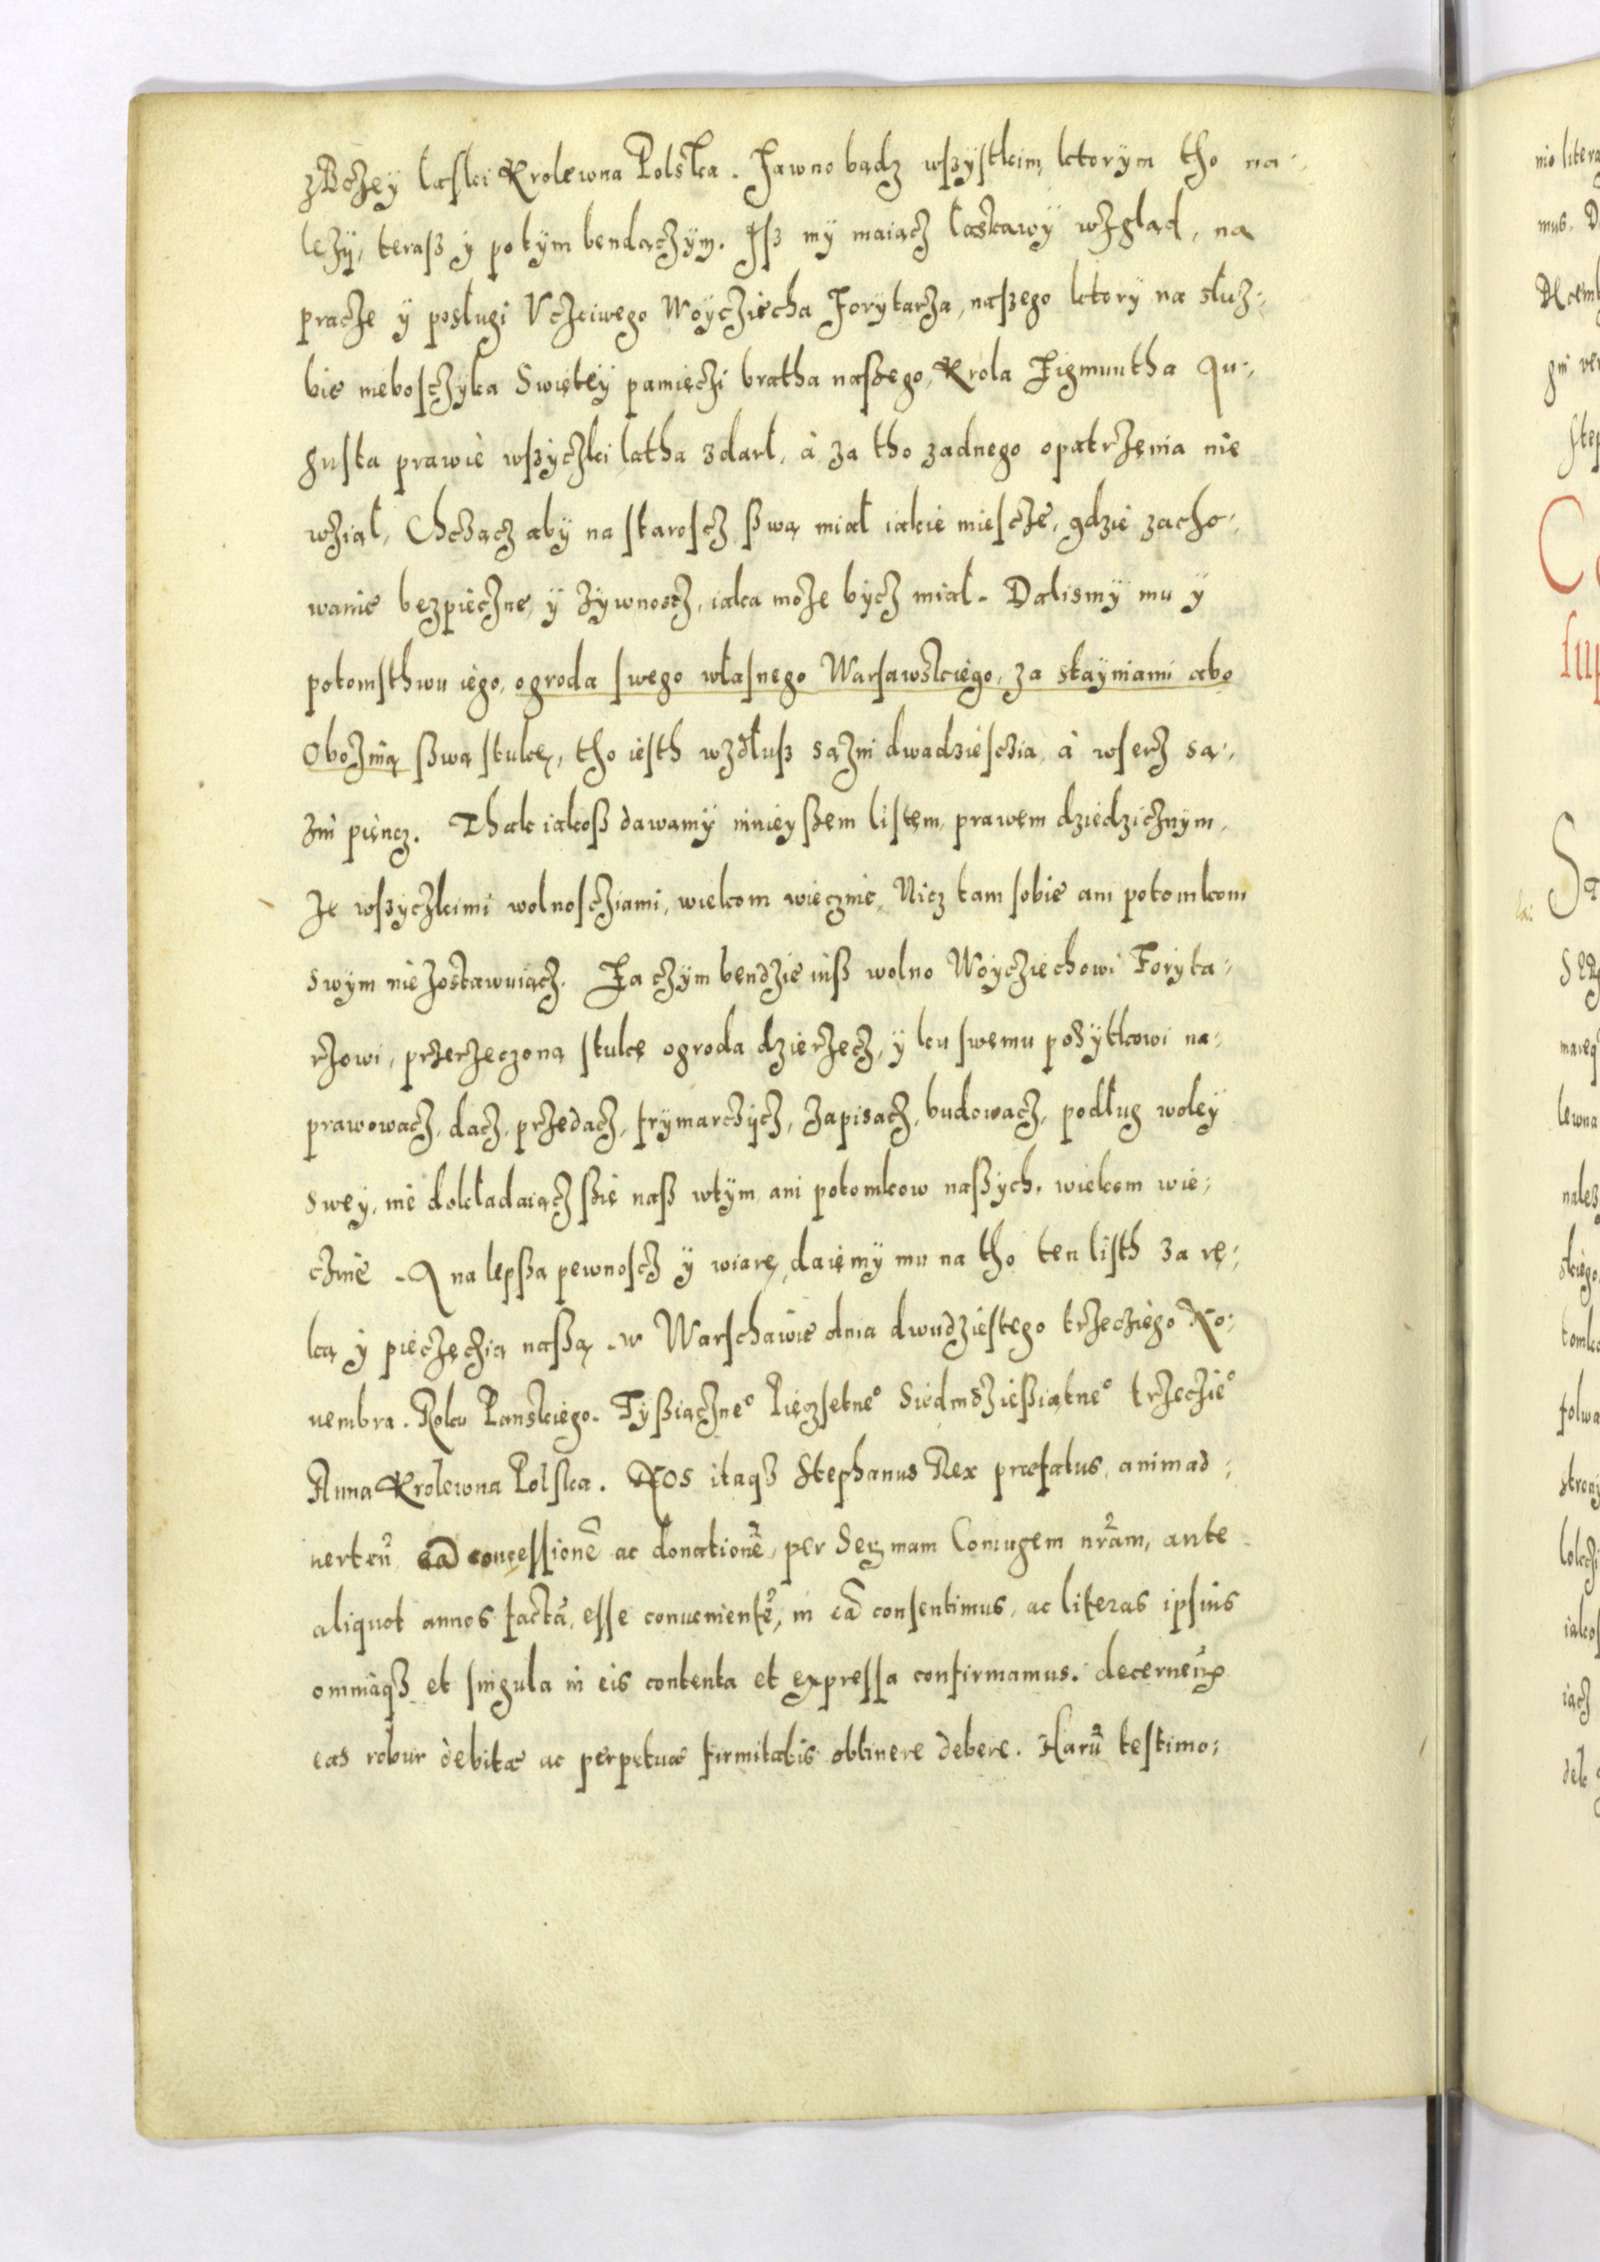 z Bożey łaski Krolewna Polska. Jawno bądz wszystkim, ktorym tho na⸗
leży, teraß y potym bendączym. Jß my maiącz łaskawy wzgląd, na
pracże y posługi Vczciwego Woyczięcha Forytarza, naszego ktory na służ⸗
bie nieboszczyka Swiętey pamięczi bratha naßego, Krola Zigmuntha Au⸗
gusta prawie wszyczki latha zdarł, à za tho zadnego opatrzenia nie
wziął, Chcząc aby na staroscz ßwą miał iakie miescze, gdzie zacho⸗
wanie bezpieczne, y żywnoscz, iaka może bycz miał. Dalismy mu y
potomsthwu iego, ogroda swego własnego Warsawskiego, za stayniami abo
Oboznią ßwą stukę, tho iesth wzdłuß sązni dwadziesczia, à wserz są⸗
zni pięncz. Thak iakoß dawamy ninieyßem listem, prawem dziedzicznym,
ze wszyczkimi wolnoscziami, wiekom wiecznie, Nicz tam sobie ani potomkom
swym nie zostawuiącz. Za czym bendzie iuß wolno Woyczięchowi Foryta⸗
rzowi, przerzeczoną stukę ogroda dzierzecz, y ku swemu pożytkowi na⸗
prawowacz, dacz, przedacz, frymarczycz, zapisacz, budowacz, podług woley
swey, nie dokładaiącz ßię naß wtym ani potomkow naßych, wiekom wie⸗
cznie. A na lepßa pewnoscz y wiarę, daiemy mu na tho ten listh za rę⸗
ką y pieczęczią naßą. w Warschawie dnia dwudziestego trzecziego No⸗
uembra. Roku Panskiego. Tyßiączneº Pięczsetneº Siedmdzießiątneº trzeczieº
Anna Krolewna Polska. Nos itaqʒ Stephanus Rex præfatus, animad⸗
uerteñ eã concessionẽ ac donationẽ, per Serᵐmam Coniugem nr̃am, ante
aliquot annos factã, esse conuenientẽ, in eã consentimus, ac literas ipsius
omniaqʒ et singula in eis contenta et expressa confirmamus. decerneñ
eas robur debitæ ac perpetuæ firmitatis obtinere debere. Harũ testimo⸗